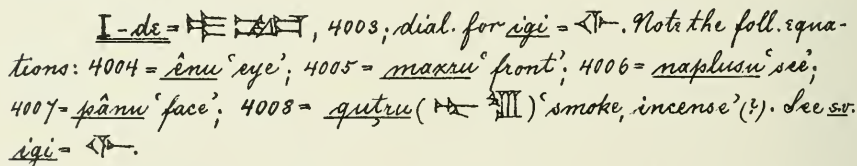 I-dε = 𒄿 𒉈, 4003; dial. for igi = 𒅆. Note the foll. equa-
tions: 4004 = ênu ‘eye’; 4005 = maxru ‘front’; 4006 = naplusu ‘see’;
4007 = pânu ‘face’; 4008 = quṭru ( ) ‘smoke, incense’ (?). See s.v.
igi = 𒅆.